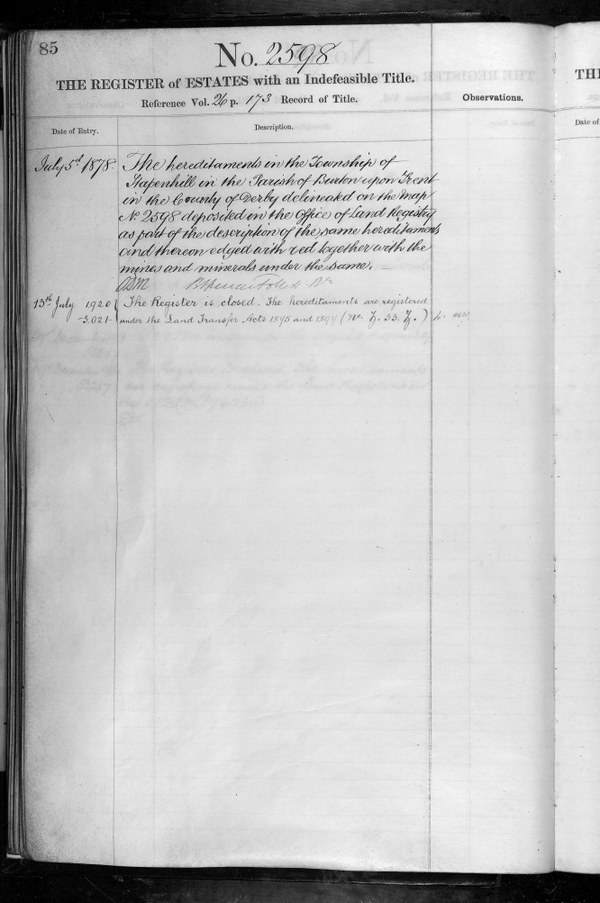 85
No. 2598
THE REGISTER of ESTATES with an Indefeasible Title.
Reference Vol. 26 p. 173 Record of Title.
Observations.
Date of Entry.
Description.
July 5th 1878. The hereditaments in the Township of
Stapenhill in the Parish of Burton upon Trent
in the County of Derby delineated on the map
No 2598 deposited in the Office of Land Registry
as part of the description of the same hereditaments
and thereon edged with red together with the
mines and minerals under the same.
13th July 1920 The Register is closed. The hereditaments are registered
3.021 under the Land Transfer Acts 1875 and 1897
THE
Date of